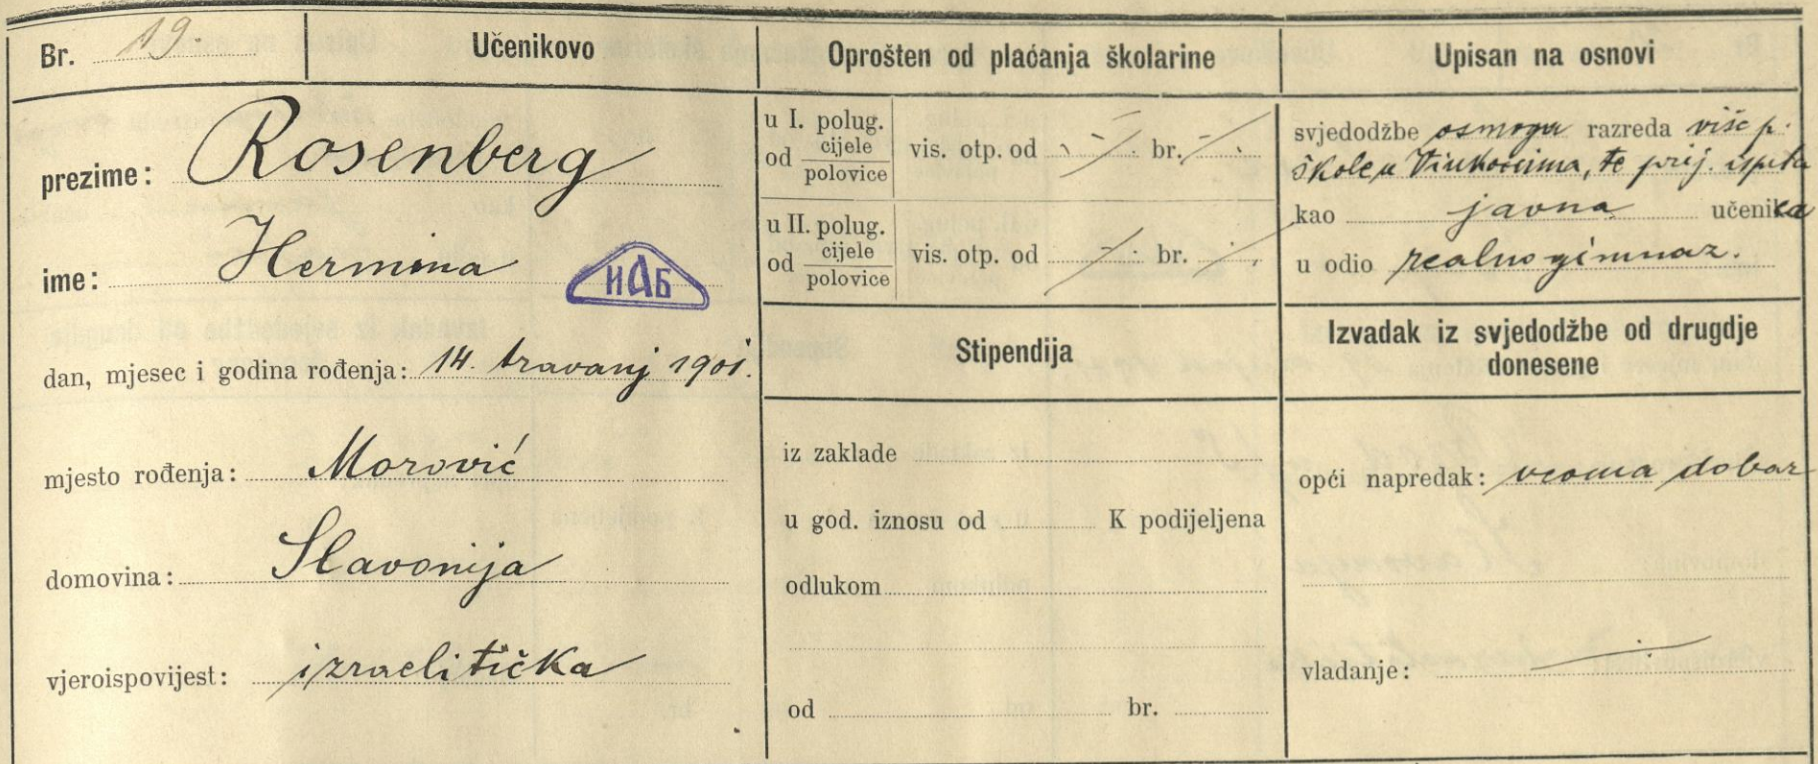 Br. 19.
Učenikovo
prezime: Rosenberg
ime: Hermina
ИАБ
dan, mjesec i godina rođenja: 14. travanj 1901.
mjesto rođenja: Morović
domovina: Slavonija
vjeroispovijest: izraelitička
Oprošten od plaćanja školarine
u I. polug.
od cijele polovice vis. otp. od -/. br. -/.
u II. polug.
od cijele polovice vis. otp. od -/. br. -/.
Stipendija
iz zaklade
u god. iznosu od K podijeljena
odlukom
od br.
Upisan na osnovi
svjedodžbe osmoga razreda više p.
škole u Vinkovcima, te prij. ispita
kao javna učenica
u odio realno gimnaz.
Izvadak iz svjedodžbe od drugdje
donesene
opći napredak: veoma dobar
vladanje: —